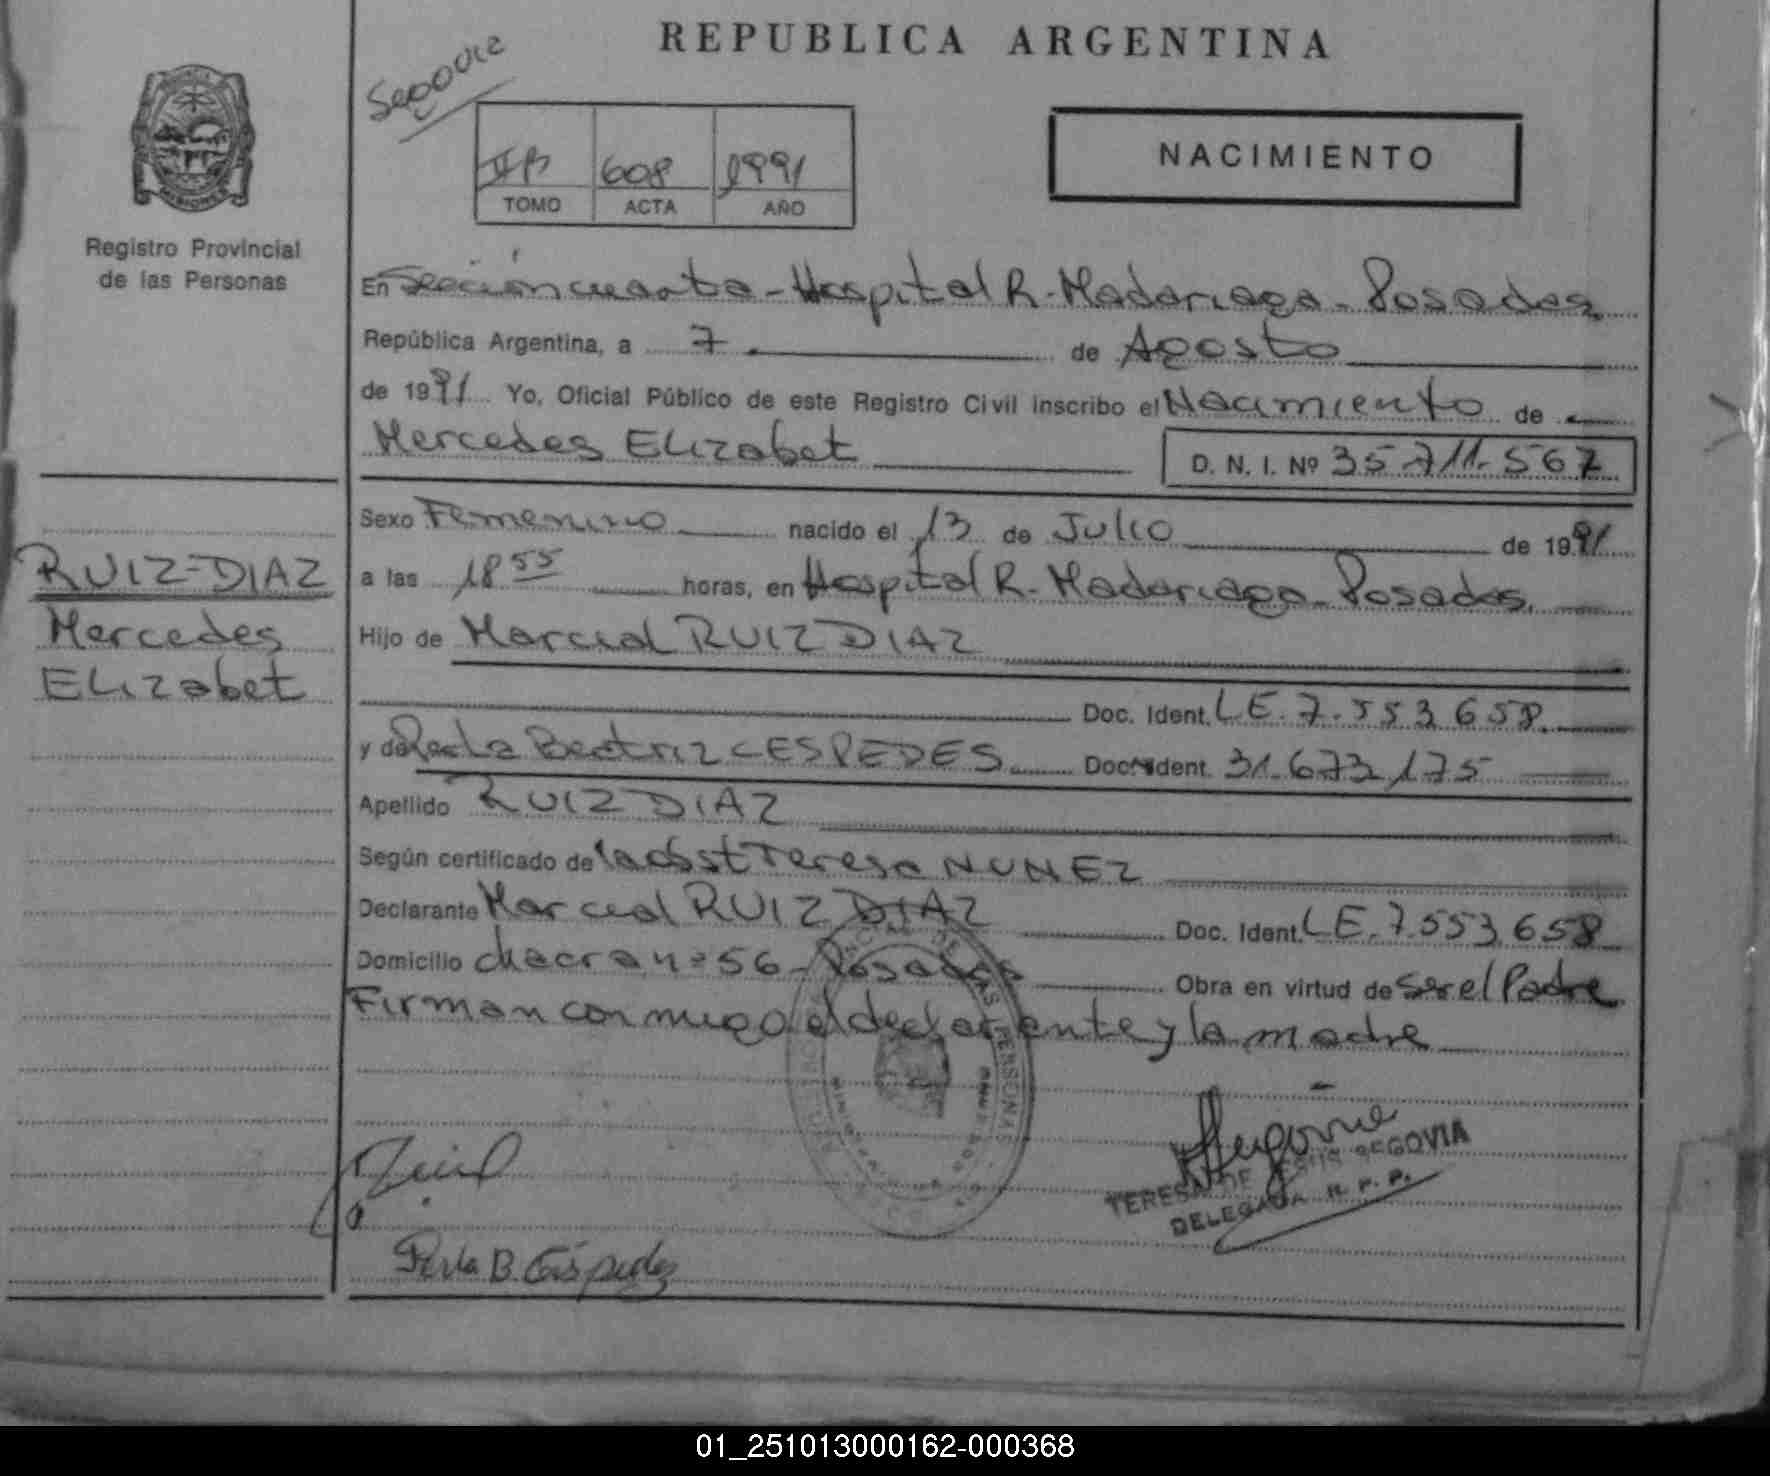 REPUBLICA ARGENTINA
Segovia
IIB 608 1991
TOMO ACTA AÑO
NACIMIENTO
MISIONES
Registro Provincial
de las Personas
En Sección cuarta - Hospital R. Madariaga - Posadas
República Argentina, a 7 de Agosto
de 1991 Yo, Oficial Público de este Registro Civil inscribo el Nacimiento de
Mercedes ELizabet D. N. I. Nº 35.711.567
Sexo Femenino nacido el 13 de Julio de 1991
a las 18 55 horas, en Hospital R. Madariaga - Posadas
Hijo de Marcial RUIZ DIAZ
Doc. Ident. LE. 7.553.658
y de Perla Beatriz CESPEDES Doc. Ident. 31.673.175
Apellido RUIZ DIAZ
Según certificado de la obst Teresa NUNEZ
Declarante Marcial RUIZ DIAZ Doc. Ident. LE. 7.553.658
Domicilio chacra nº 56 - Posadas Obra en virtud de ser el Padre
Firman conmigo el declarante y la madre
RUIZ-DIAZ
Mercedes
ELizabet
TERESA DE JESUS SEGOVIA
DELEGADA R. P. P.
Perla B. Céspedes
01_251013000162-000368